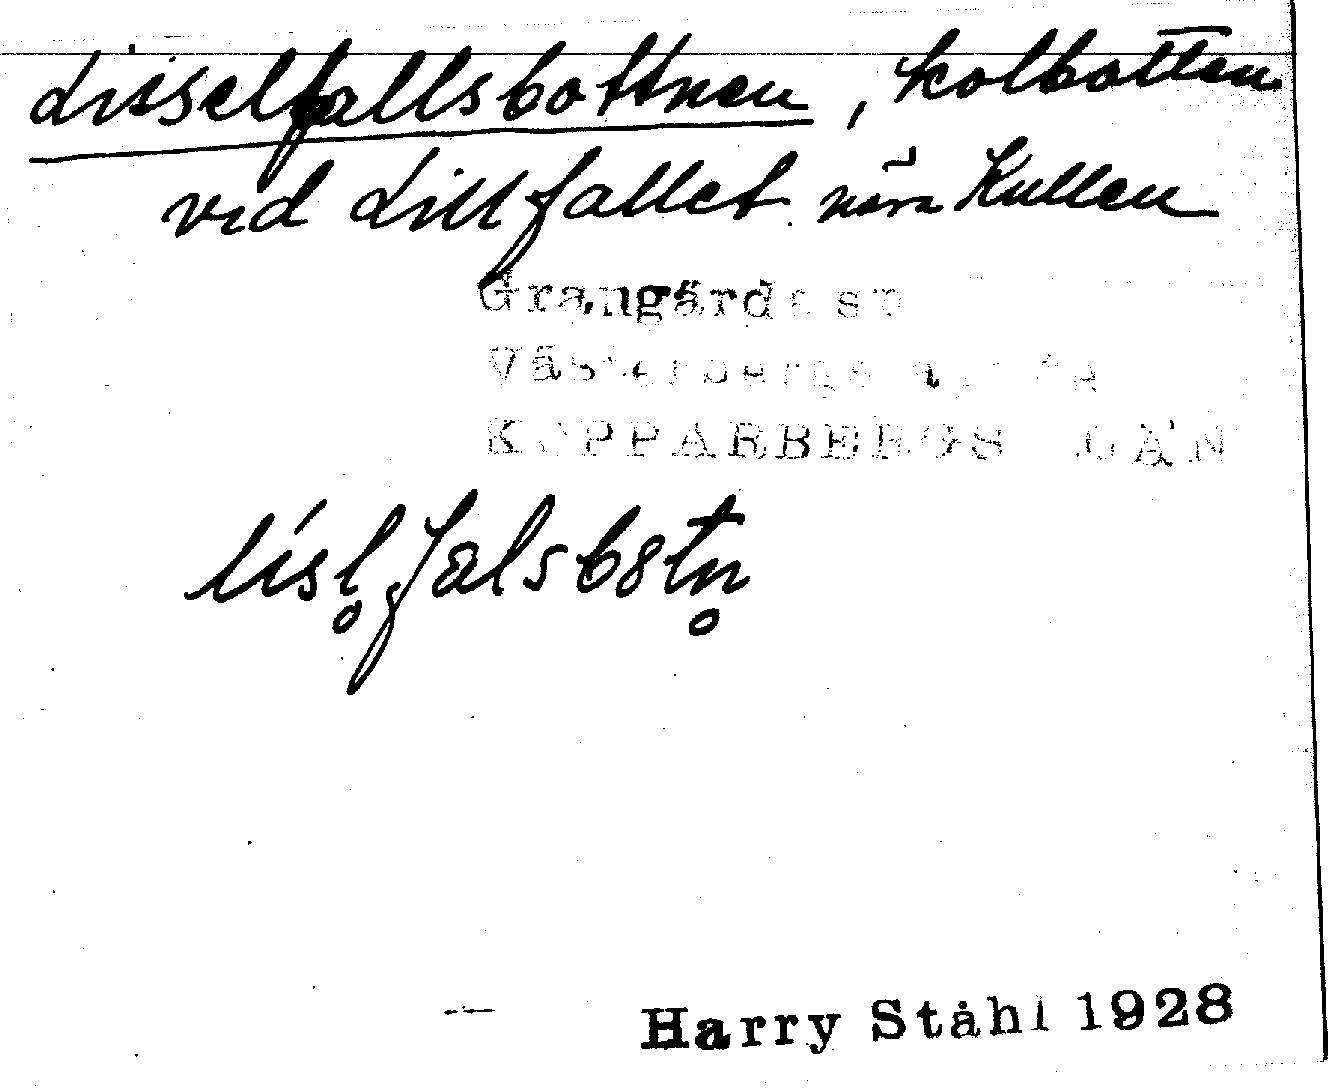 Lisselfallsbottnen, kolbotten
vid Lillfallet nära Kullen
Grangärde sn
Västerbergs
KOPPARBERGS LÄN
Harry Ståhl 1928